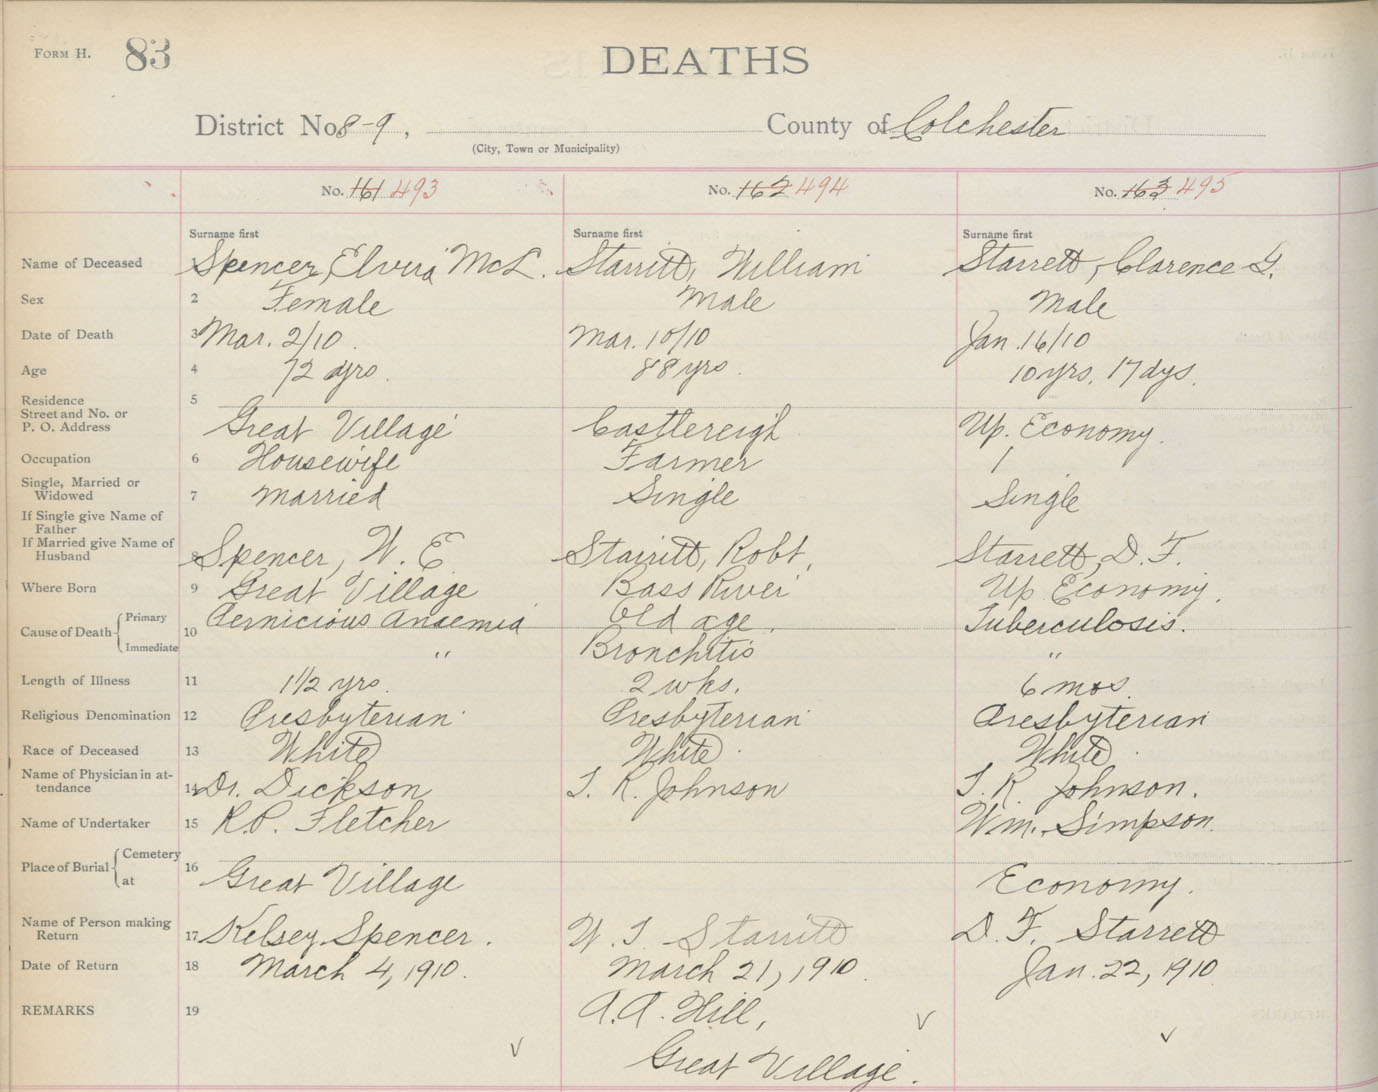 FORM H. 83 DEATHS
District No. 8-9, County of Colchester
(City, Town or Municipality)
No. 161 493 No. 162 494 No. 163 495
Surname first Surname first Surname first
Name of Deceased 1 Spencer, Elvira McL. Starritt, William Starrett, Clarence G.
Sex 2 Female Male Male
Date of Death 3 Mar. 2/10. Mar. 10/10 Jan. 16/10
Age 4 72 yrs. 88 yrs. 10 yrs. 17 dys.
Residence 5
Street and No. or
P. O. Address Great Village Castlereigh Up. Economy.
Occupation 6 Housewife Farmer /
Single, Married or
Widowed 7 Married Single Single
If Single give Name of
Father
If Married give Name of
Husband 8 Spencer, W. E Starritt, Robt, Starrett, D. F.
Where Born 9 Great Village Bass River Up Economy.
Cause of Death { Primary 10 Pernicious Anaemia Old age. Tuberculosis.
Immediate " Bronchitis "
Length of Illness 11 1 1/2 yrs. 2 wks. 6 mos.
Religious Denomination 12 Presbyterian Presbyterian Presbyterian
Race of Deceased 13 White White White
Name of Physician in at-
tendance 14 Dr. Dickson T. R. Johnson T. R. Johnson.
Name of Undertaker 15 R.P. Fletcher Wm. Simpson.
Place of Burial { Cemetery 16
at Great Village Economy.
Name of Person making
Return 17 Kelsey Spencer. W. T. Starritt D. F. Starrett
Date of Return 18 March 4, 1910. March 21, 1910. Jan. 22, 1910
REMARKS 19 A.A. Hill,
Great Village.